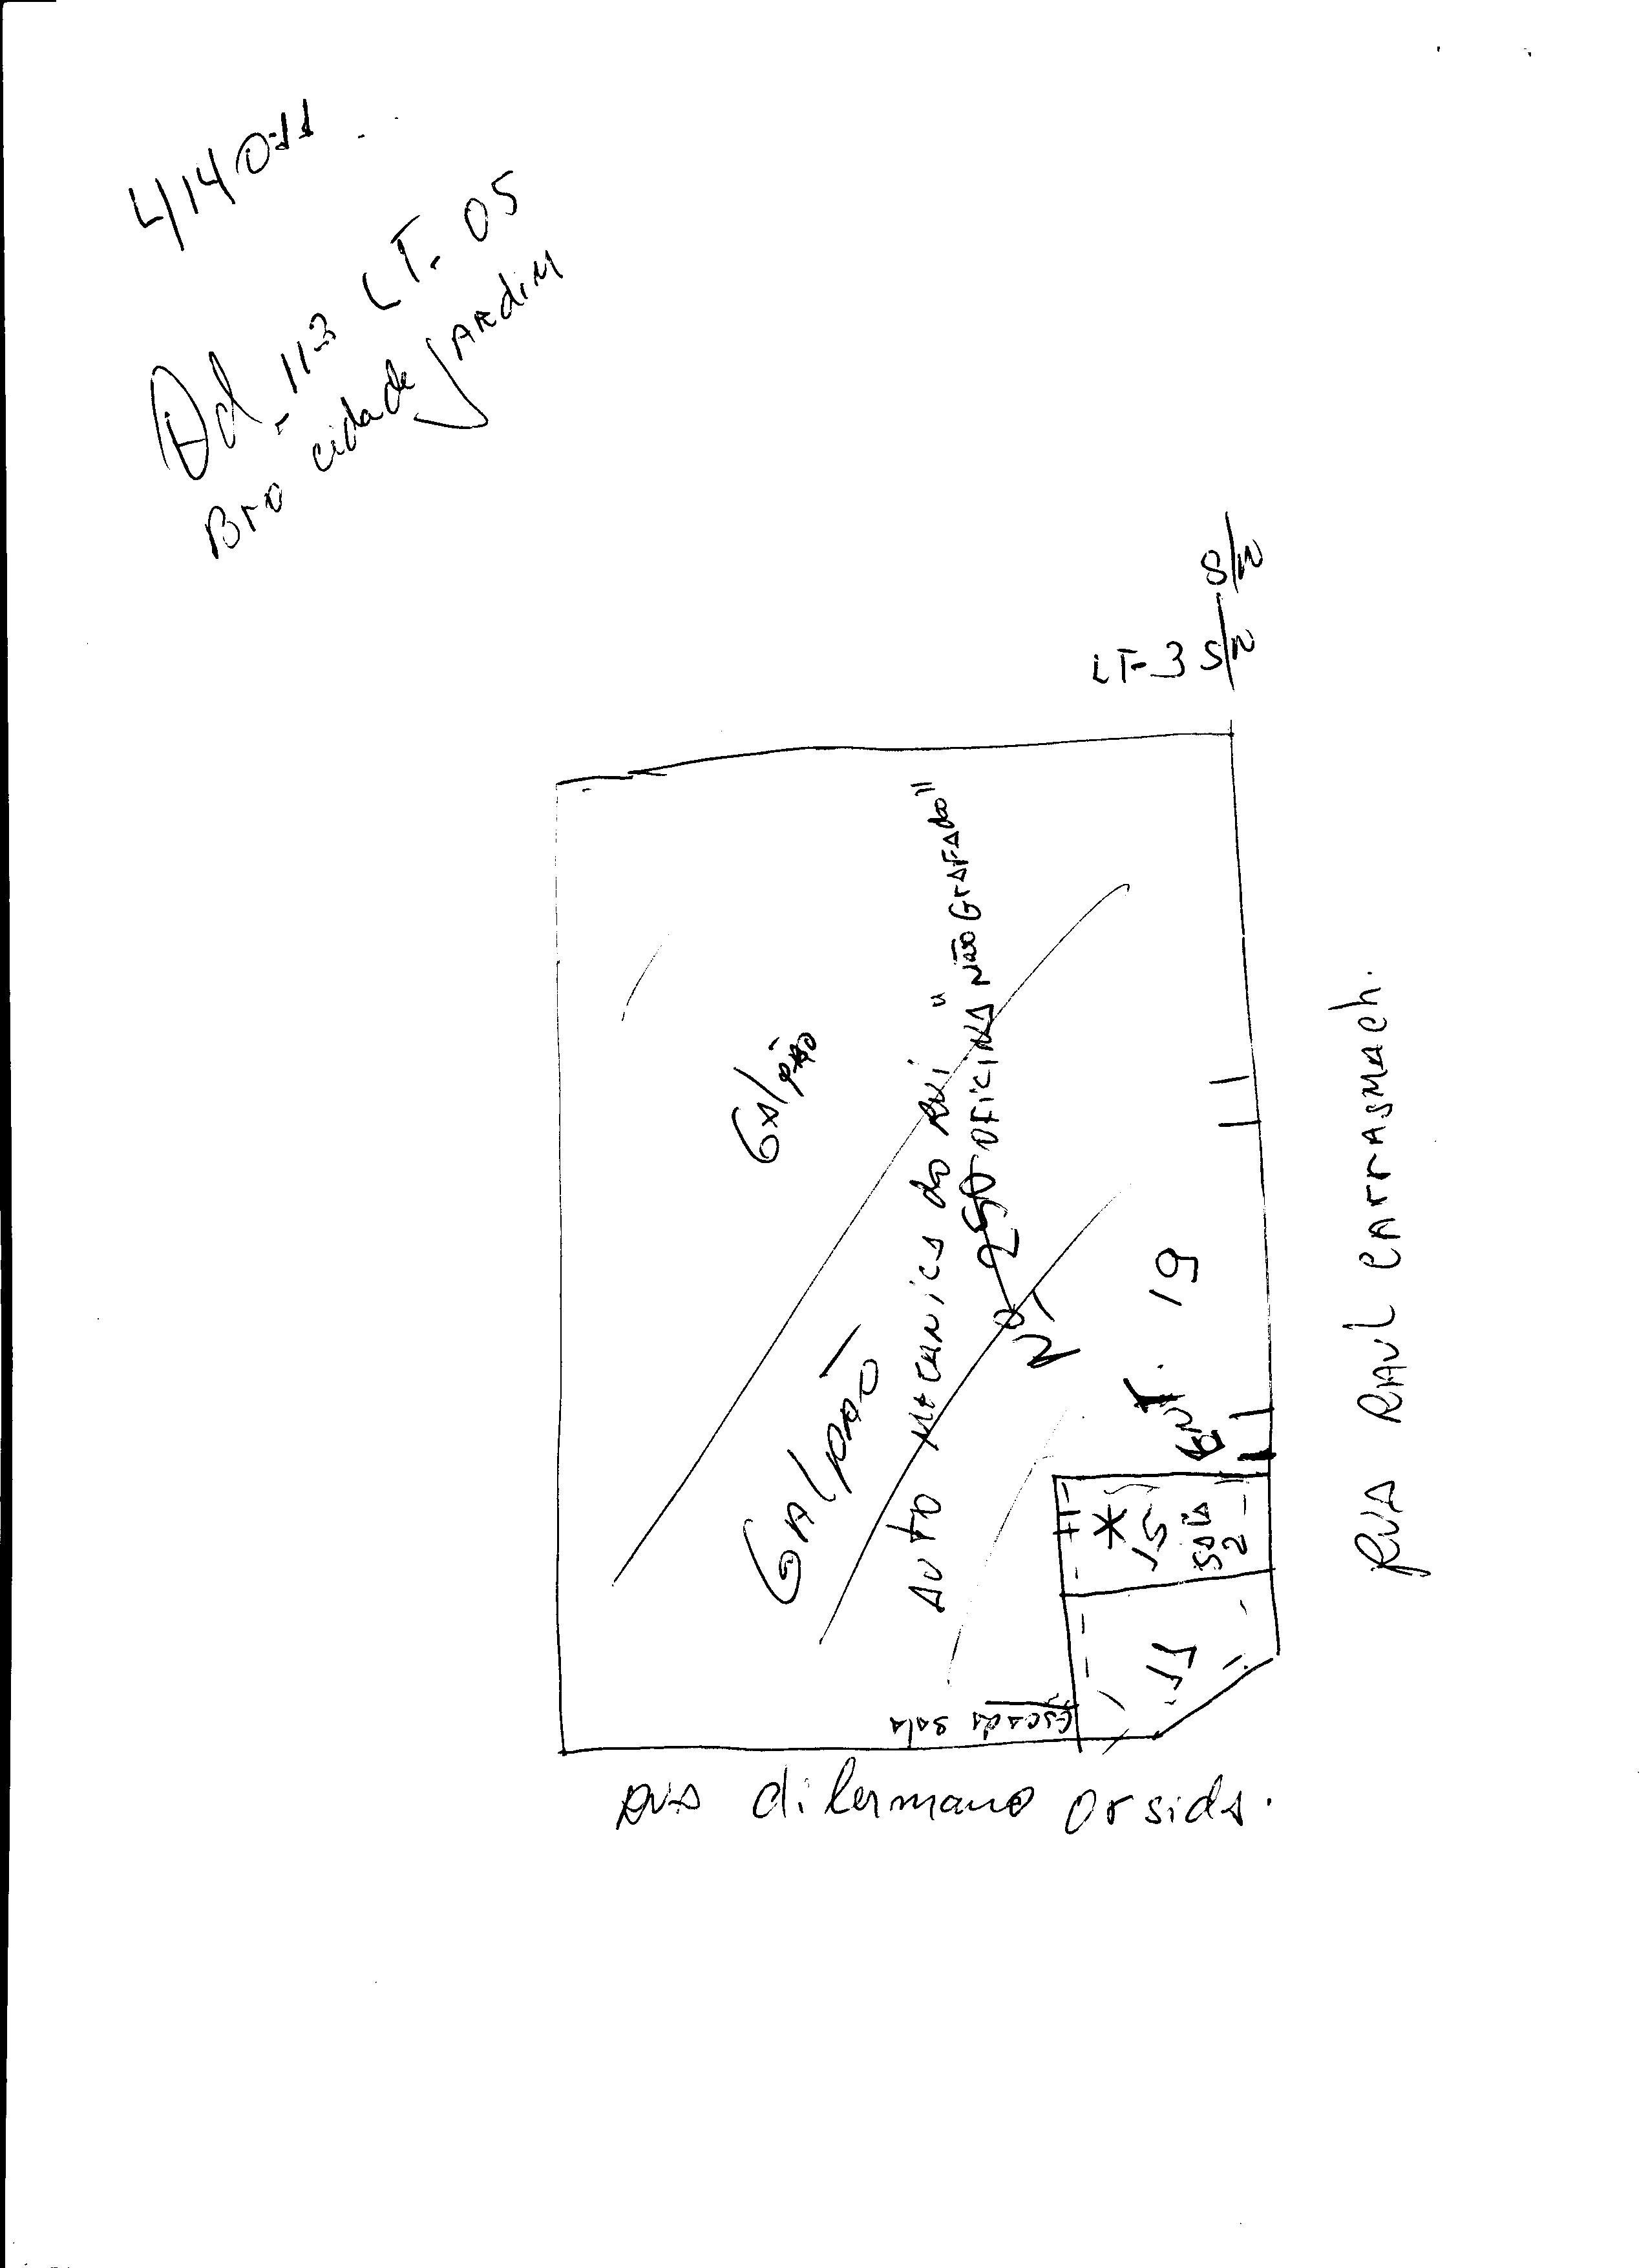 4140-11
Qd - 113 LT- 05
Bro cidade JArdim
S/N
LT-3 S/N
GAlpão
GAlpão
Auto mecanica do Rui
"OFICINA Não GrAFAdo"
Nº 250
Ent. 19
* 15
SALA
2
11
escada sala
RUA dilermano orsida.
RUA RAUL CArrASMACh.